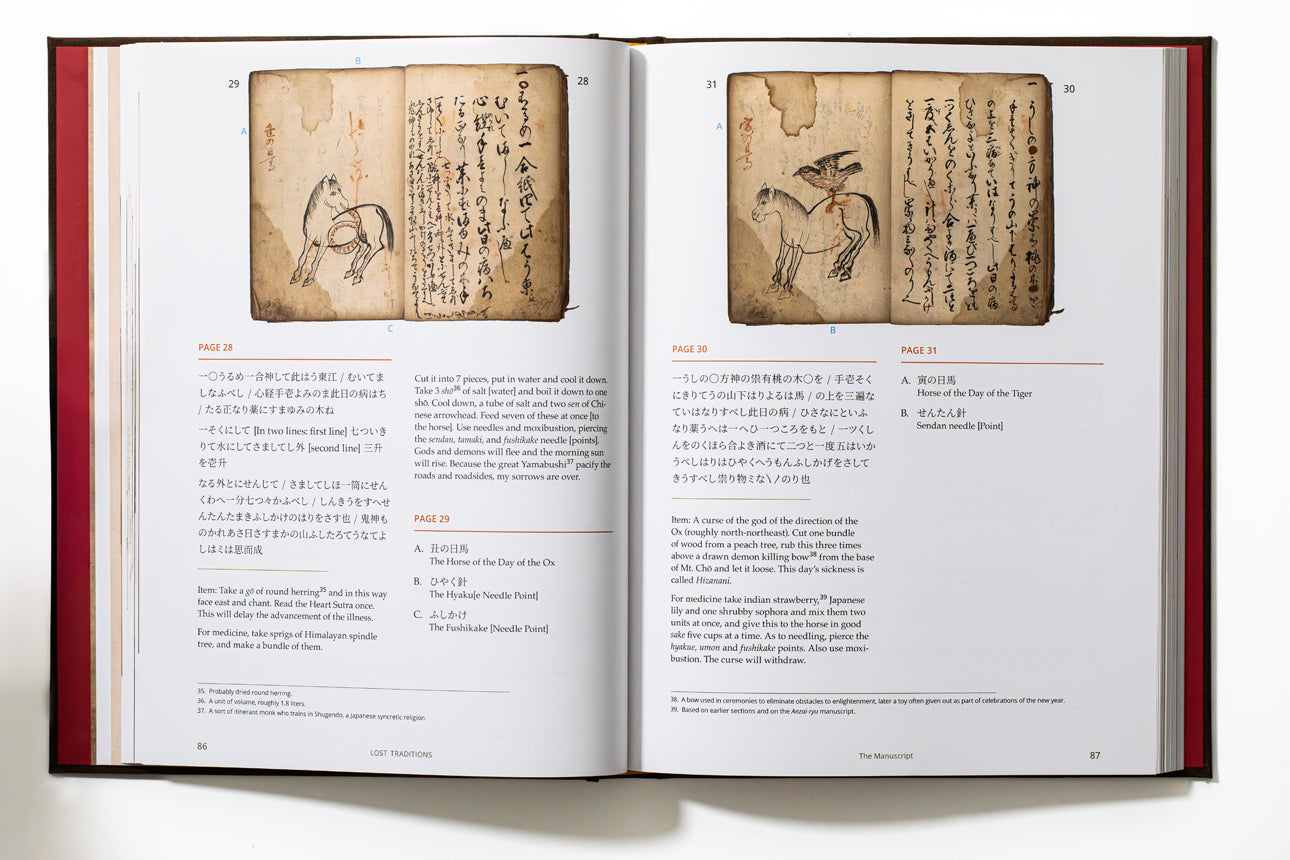 29
B
28
A
C
PAGE 28
一〇うるめ一合神して此はう東江 / むいてま
しなふべし / 心経手壱よみのま此日の病はち
/ たる正なり薬にすまゆみの木ね
一そくにして [In two lines: first line] 七ついき
りて水にしてさましてし外 [second line] 三升
を壱升
なる外とにせんじて / さましてしほ一筒にせん
くわへ一分七つ々かふべし / しんきうをすへせ
んたんたまきふしかけのはりをさす也 / 鬼神も
のかれあさ日さすまかの山ふしたろてうなてよ
しはミは思而成
Item: Take a gō of round herring35 and in this way
face east and chant. Read the Heart Sutra once.
This will delay the advancement of the illness.
For medicine, take sprigs of Himalayan spindle
tree, and make a bundle of them.
Cut it into 7 pieces, put in water and cool it down.
Take 3 shō36 of salt [water] and boil it down to one
shō. Cool down, a tube of salt and two sen of Chi-
nese arrowhead. Feed seven of these at once [to
the horse]. Use needles and moxibustion, piercing
the sendan, tamaki, and fushikake needle [points].
Gods and demons will flee and the morning sun
will rise. Because the great Yamabushi37 pacify the
roads and roadsides, my sorrows are over.
PAGE 29
A. 丑の日馬
The Horse of the Day of the Ox
B. ひやく針
The Hyaku[e Needle Point]
C. ふしかけ
The Fushikake [Needle Point]
35. Probably dried round herring.
36. A unit of volume, roughly 1.8 liters.
37. A sort of itinerant monk who trains in Shugendo, a Japanese syncretic religion.
86
LOST TRADITIONS
31
30
A
B
PAGE 30
一うしの〇方神の祟有桃の木〇を / 手壱そく
にきりてうの山下はりよるは馬 / の上を三遍な
ていはなりすべし此日の病 / ひさなにといふ
なり薬うへは一へひ一つころをもと / 一ツくし
んをのくほら合よき酒にて二つと一度五はいか
うべしはりはひやくへうもんふしかげをさして
きうすべし祟り物ミな\ノのり也
Item: A curse of the god of the direction of the
Ox (roughly north-northeast). Cut one bundle
of wood from a peach tree, rub this three times
above a drawn demon killing bow38 from the base
of Mt. Chō and let it loose. This day's sickness is
called Hizanani.
For medicine take indian strawberry,39 Japanese
lily and one shrubby sophora and mix them two
units at once, and give this to the horse in good
sake five cups at a time. As to needling, pierce the
hyakue, umon and fushikake points. Also use moxi-
bustion. The curse will withdraw.
PAGE 31
A. 寅の日馬
Horse of the Day of the Tiger
B. せんたん針
Sendan needle [Point]
38. A bow used in ceremonies to eliminate obstacles to enlightenment, later a toy often given out as part of celebrations of the new year.
39. Based on earlier sections and on the Anzai-ryu manuscript.
The Manuscript
87